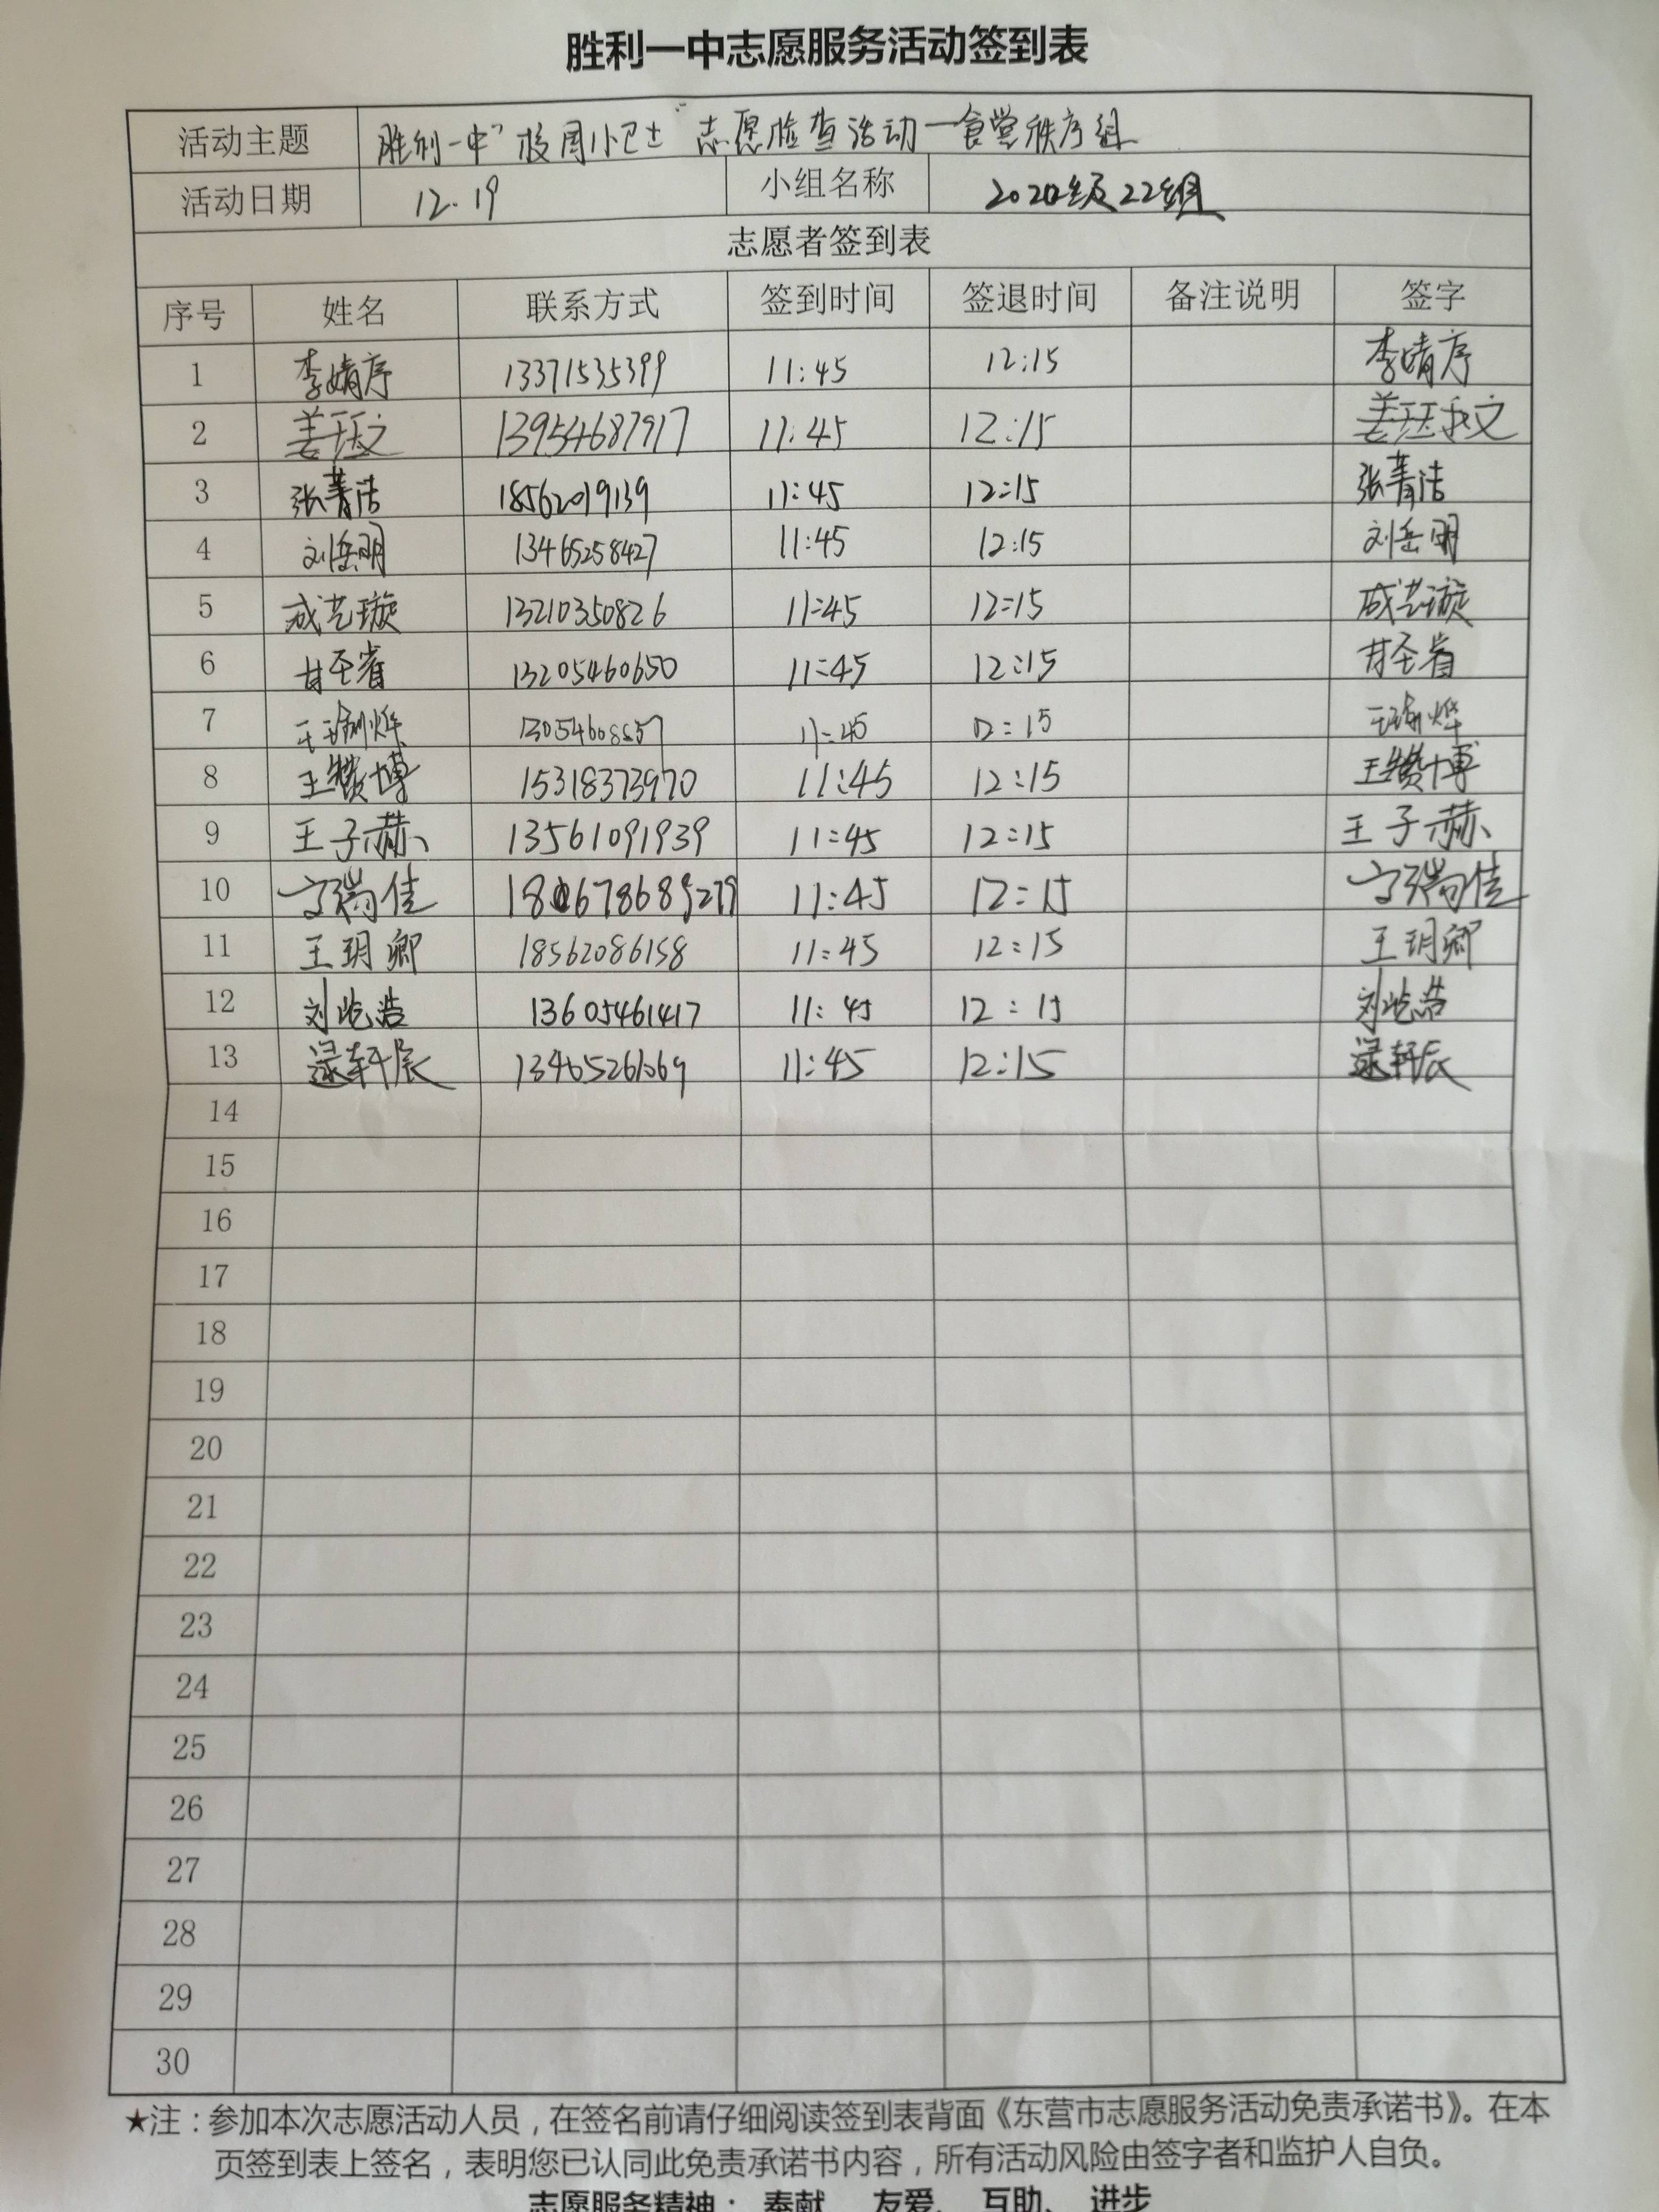 胜利一中志愿服务活动签到表
活动主题 胜利一中"校园小卫士"志愿检查活动—食堂秩序组
活动日期 12.19 小组名称 2020级22组
志愿者签到表
序号 姓名 联系方式 签到时间 签退时间 备注说明 签字
1 李婧序 13371535399 11:45 12:15 李婧序
2 姜珏文 13954687917 11:45 12:15 姜珏文
3 张菁洁 18562019139 11:45 12:15 张菁洁
4 刘岳明 13465258427 11:45 12:15 刘岳明
5 成艺璇 13210350826 11:45 12:15 成艺璇
6 甘圣省 13205460650 11:45 12:15 甘圣省
7 王瑜烨 11:45 12:15 王瑜烨
8 王赞博 15318373970 11:45 12:15 王赞博
9 王子赫 13561091939 11:45 12:15 王子赫
10 瑞佳 11:45 12:15 瑞佳
11 王玥卿 18562086158 11:45 12:15 王玥卿
12 刘屹浩 13605461417 11:45 12:15 刘屹浩
13 逯轩辰 11:45 12:15 逯轩辰
14
15
16
17
18
19
20
21
22
23
24
25
26
27
28
29
30
★注:参加本次志愿活动人员,在签名前请仔细阅读签到表背面《东营市志愿服务活动免责承诺书》。在本
页签到表上签名,表明您已认同此免责承诺书内容,所有活动风险由签字者和监护人自负。
志愿服务精神: 奉献、友爱、互助、进步